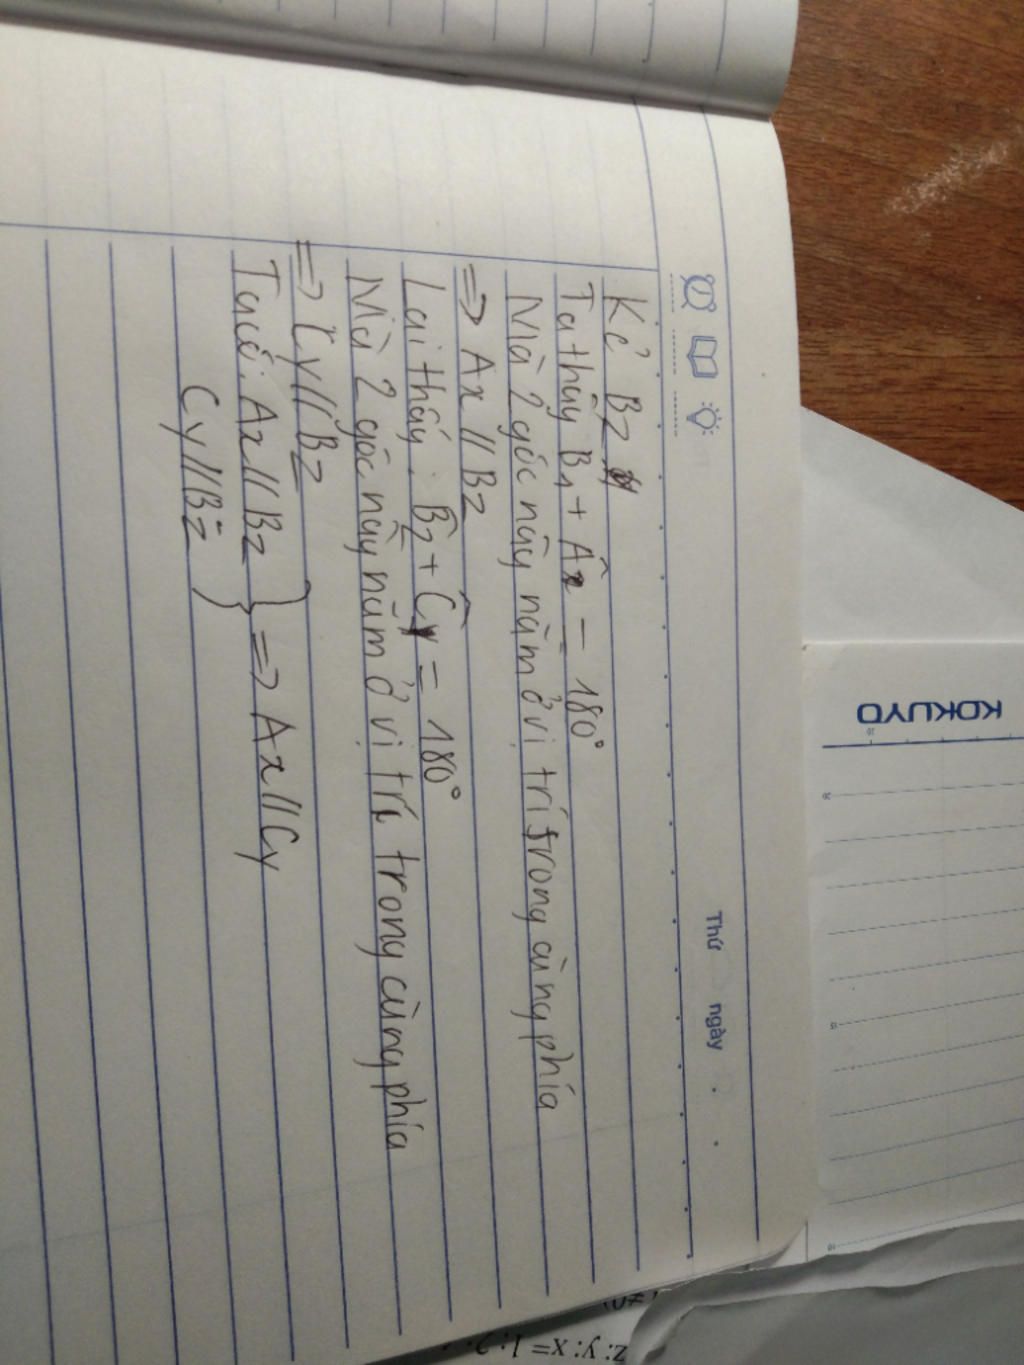 Thứ ngày
Kẻ Bz
Ta thấy B₁ + Â = 180°
Mà 2 góc này nằm ở vị trí trong cùng phía
=> Ax // Bz
Lại thấy: B̂₂ + Ĉ = 180°
Mà 2 góc này nằm ở vị trí trong cùng phía
=> Cy // Bz
Ta có: Ax // Bz } => Ax // Cy
Cy // Bz
KOKUYO
z: y: x = 1: 2: